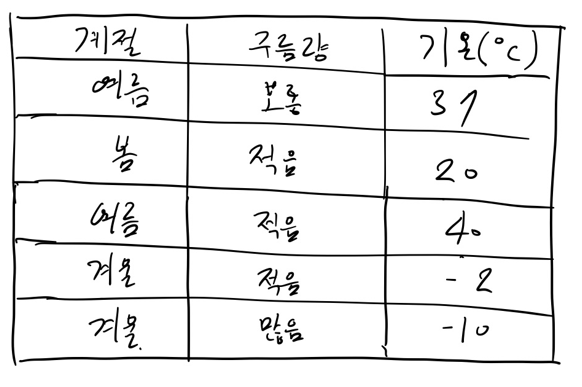 계절 구름량 기온(°C)
여름 보통 37
봄 적음 20
여름 적음 40
겨울 적음 -2
겨울 많음 -10